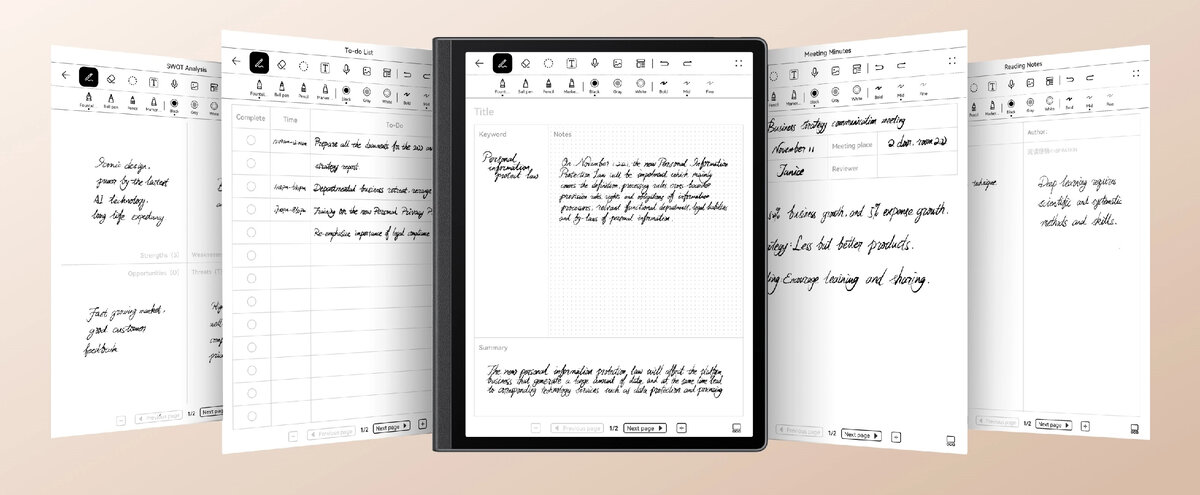 SWOT Analysis
Ball pen
Pencil
Marker
Black
Gray
White
Iconic design,
power by the latest
AI technology.
long life expendury
Strengths (S)
Opportunities (O)
Threats (T)
Fast growing market,
good customer
feedback
Previous page
1/2
Next page
To-do List
Ball pen
Pencil
Marker
Black
Gray
White
Bold
Mid
Fine
Complete
Time
To-Do
Prepare all the documents for the 2022
strategy report
Departmental business retreat
Training on the new Personal Privacy P
Re-emphasise importance of legal compliance
Previous page
1/2
Next page
Ball pen
Pencil
Marker
Black
Gray
White
Bold
Mid
Fine
Title
Keyword
Notes
Personal
information
protect law
On November 1, 2021, the new Personal Information
Protection Law will be which mainly
covers the definition, processing rules, cross
provision rules, rights and obligations of information
processors, relevant functional departments, legal liabilities
and by-laws of personal information.
Summary
The new personal information protection law will affect the platform
business that generate a large amount of data, and at the same time lead
to corresponding technology services such as data protection and
Previous page
1/2
Next page
Meeting Minutes
Black
Gray
White
Bold
Mid
Fine
Business strategy communication meeting
November 11
Meeting place
2 door, room 220
Janice
Reviewer
% business growth, and 5% expense growth.
tegy: Less but better products.
ing: Encourage learning and sharing.
Previous page
1/2
Next page
Reading Notes
Black
Gray
White
Bold
Mid
Fine
Author:
technique.
Deep learning requires
scientific and systematic
methods and skills.
Previous page
1/2
Next page